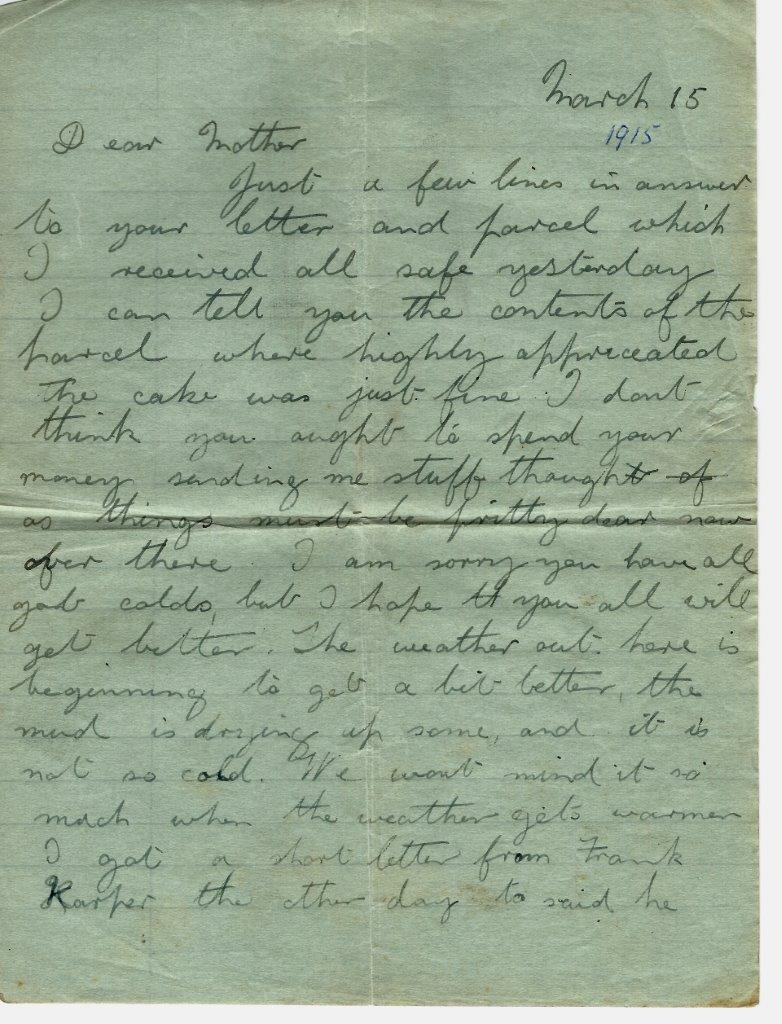 March 15
1915
Dear Mother
Just a few lines in answer
to your letter and parcel which
I received all safe yesterday
I can tell you the contents of the
parcel where highly appriceated
the cake was just fine. I dont
think you ought to spend your
money sending me stuff though of
as things must be pritty dear now
over there. I am sorry you have all
got colds, but I hope you all will
get better. The weather out here is
beginning to get a bit better, the
mud is drying up some, and it is
not so cold. We wont mind it so
much when the weather gets warmer
I got a short letter from Frank
Karper the other day to said he